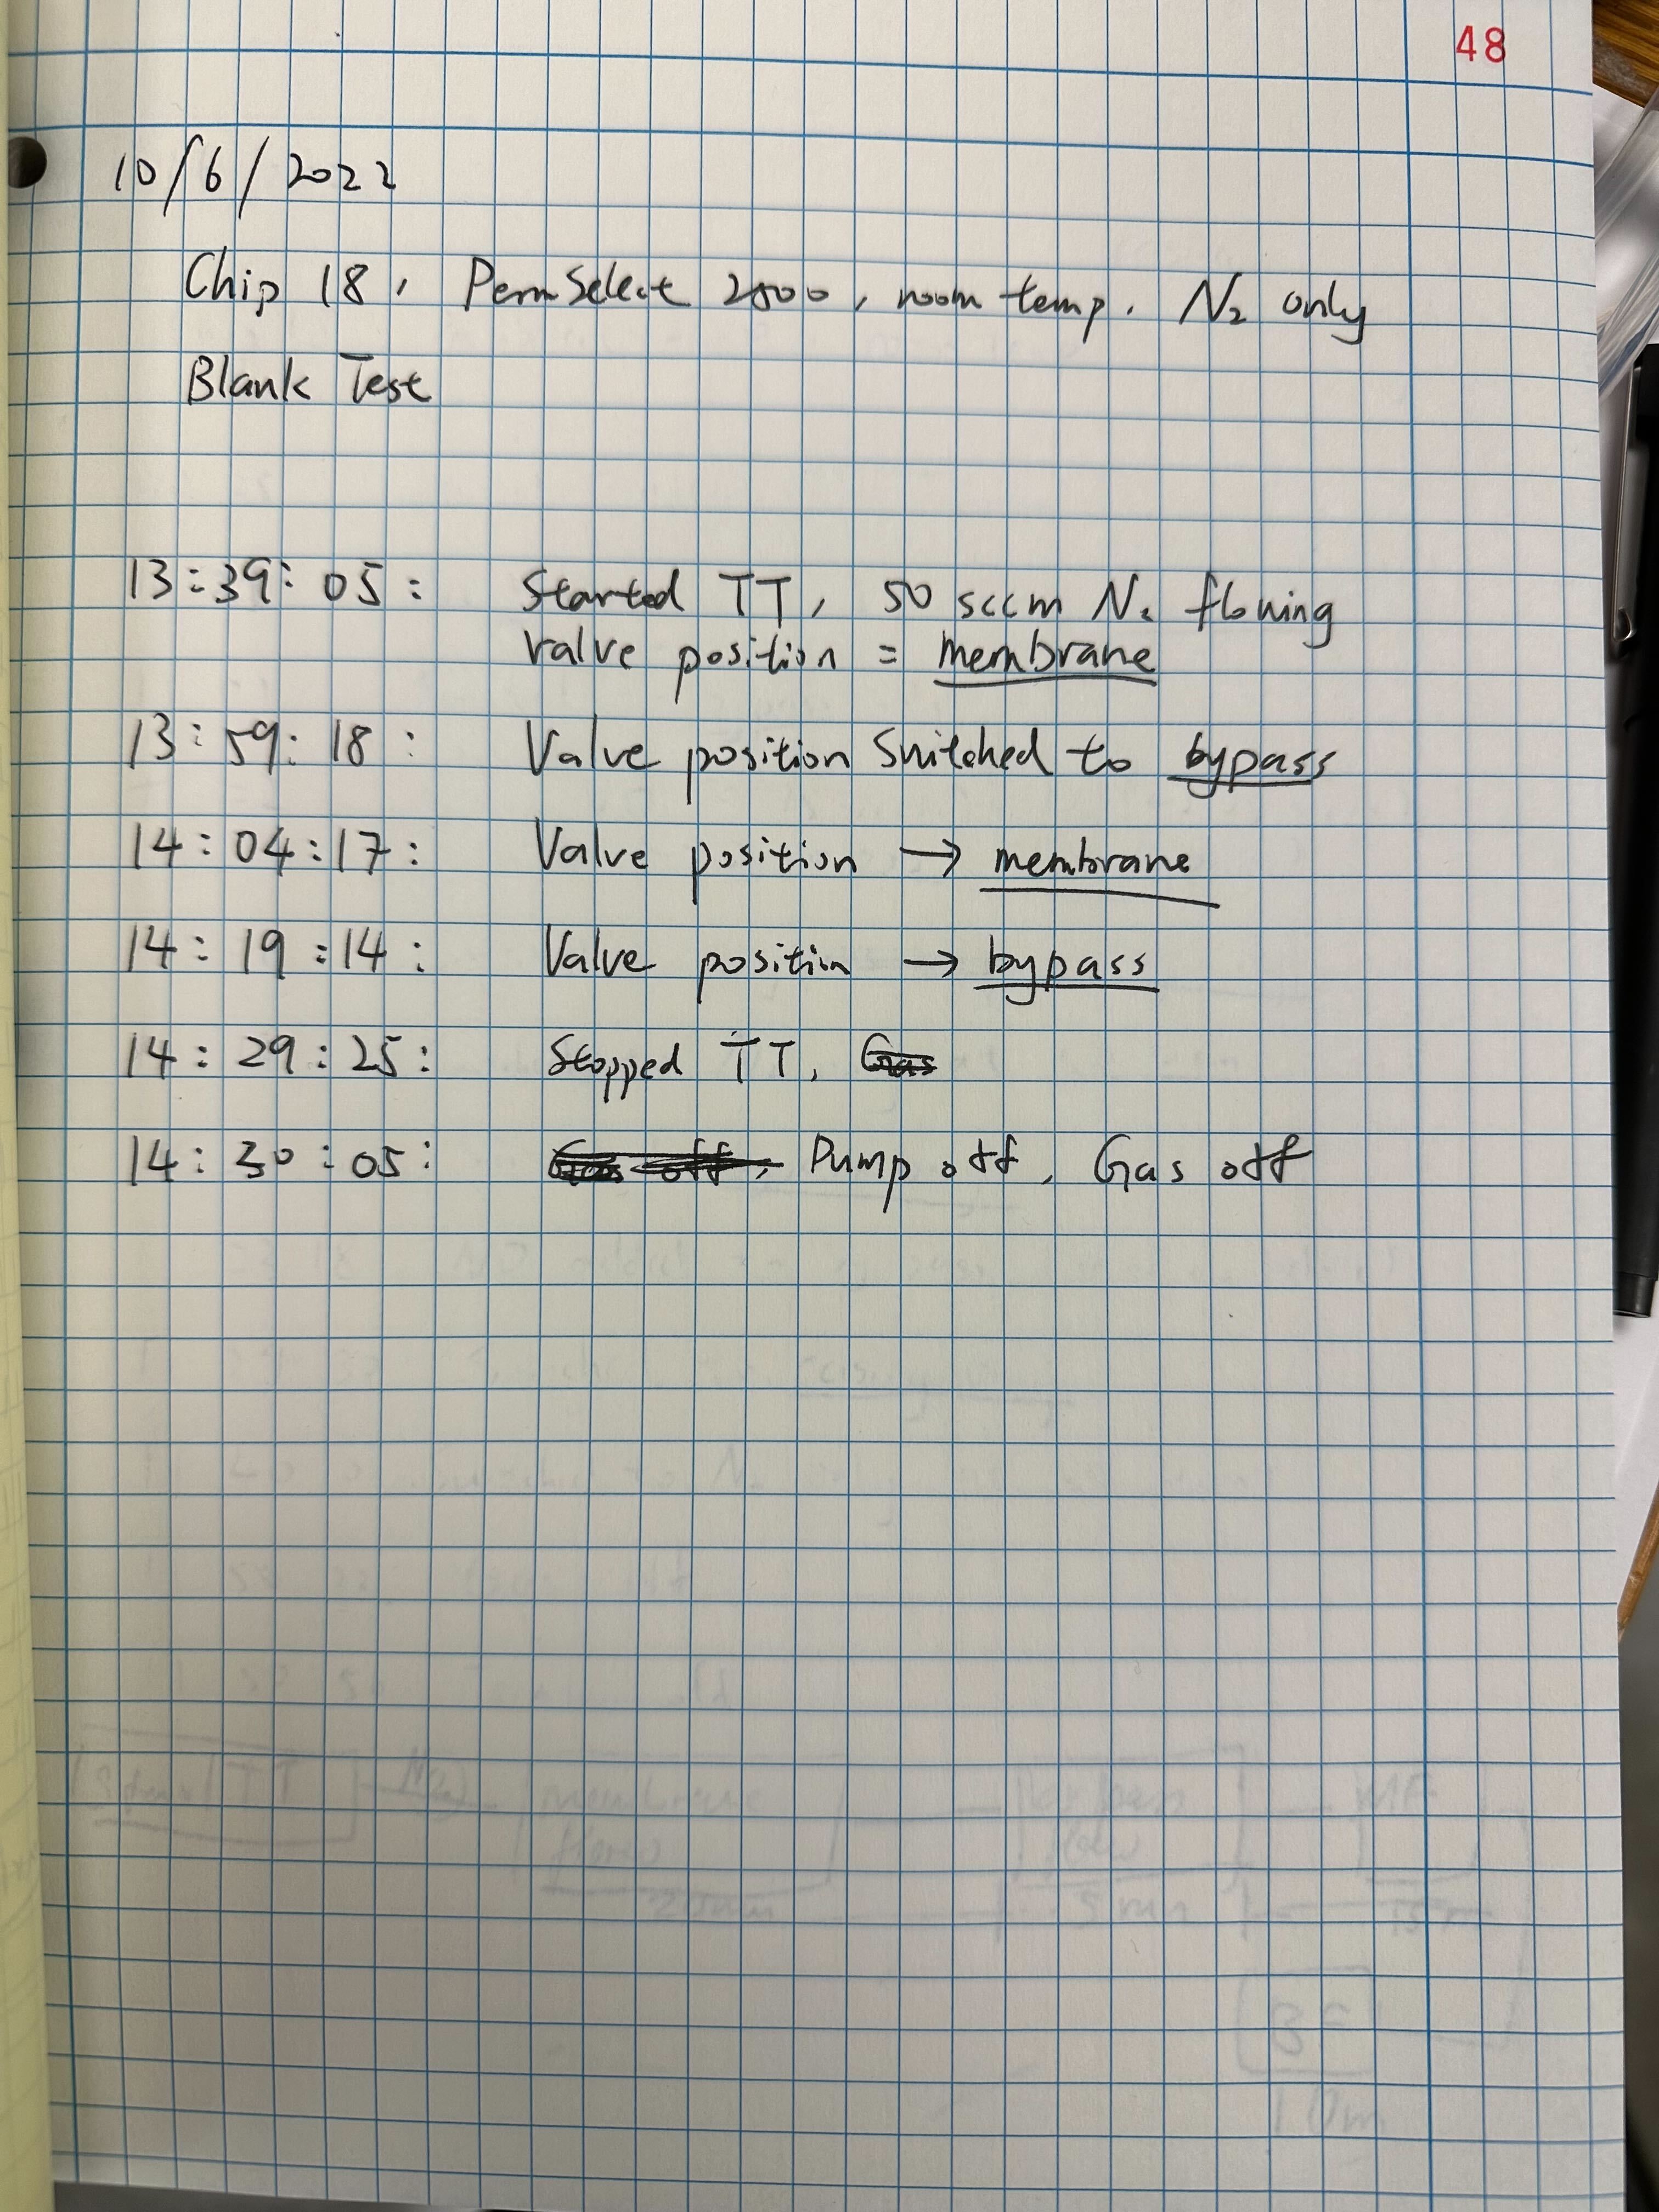 48
10/6/2022
Chip 18, PermSelect 2500, room temp. N₂ only
Blank Test
13:39:05: Started TT, 50 sccm N₂ flowing
valve position = membrane
13:59:18: Valve position switched to bypass
14:04:17: Valve position → membrane
14:19:14: Valve position → bypass
14:29:25: Stopped TT, Gas
14:30:05: Gas off, Pump off, Gas off